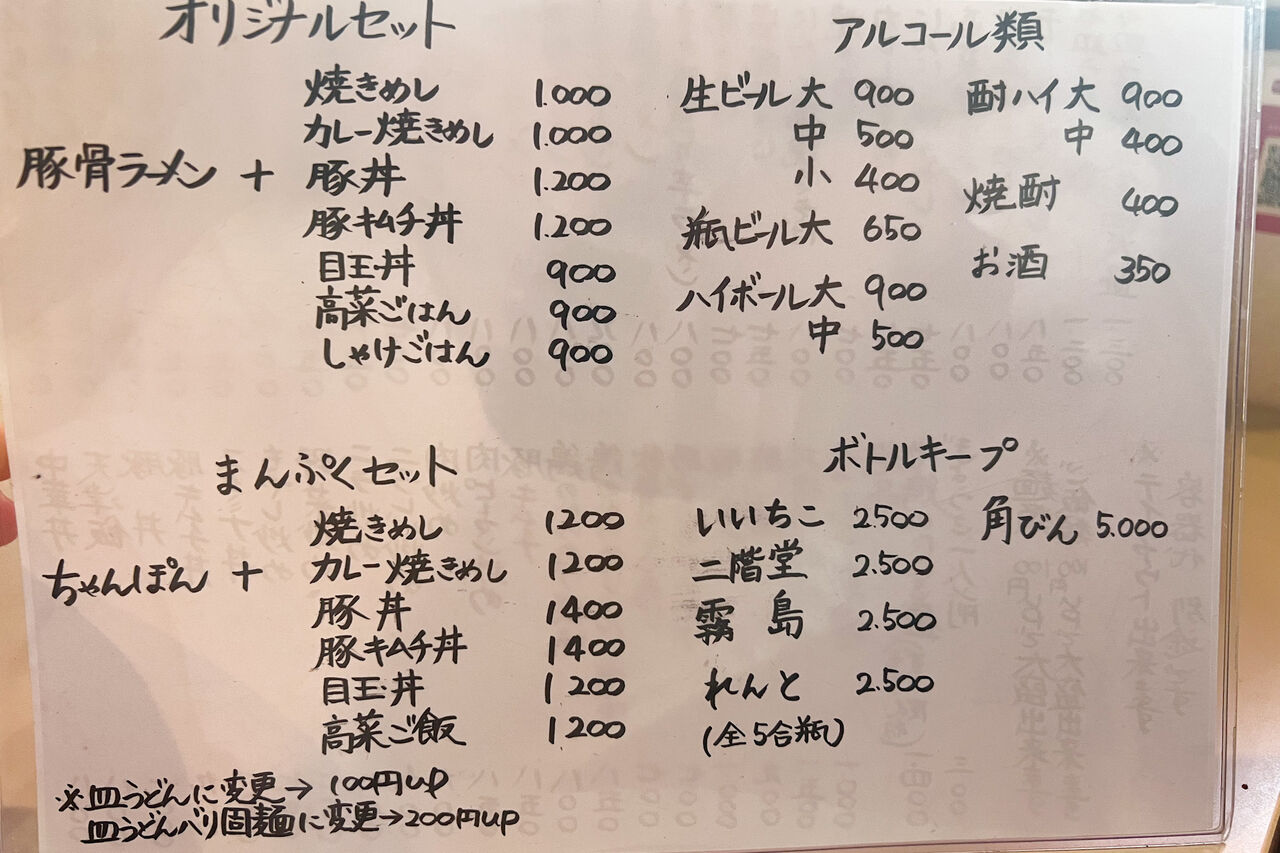 オリジナルセット
豚骨ラーメン +
焼きめし 1.000
カレー焼きめし 1.000
豚丼 1.200
豚キムチ丼 1.200
目玉丼 900
高菜ごはん 900
しゃけごはん 900
アルコール類
生ビール大 900
中 500
小 400
瓶ビール大 650
ハイボール大 900
中 500
酎ハイ大 900
中 400
焼酎 400
お酒 350
まんぷくセット
ちゃんぽん +
焼きめし 1200
カレー焼きめし 1200
豚丼 1400
豚キムチ丼 1400
目玉丼 1200
高菜ご飯 1200
※皿うどんに変更→ 100円up
皿うどんバリ固麺に変更→200円up
ボトルキープ
いいちこ 2500
二階堂 2.500
霧島 2.500
れんと 2.500
(全5合瓶)
角びん 5.000